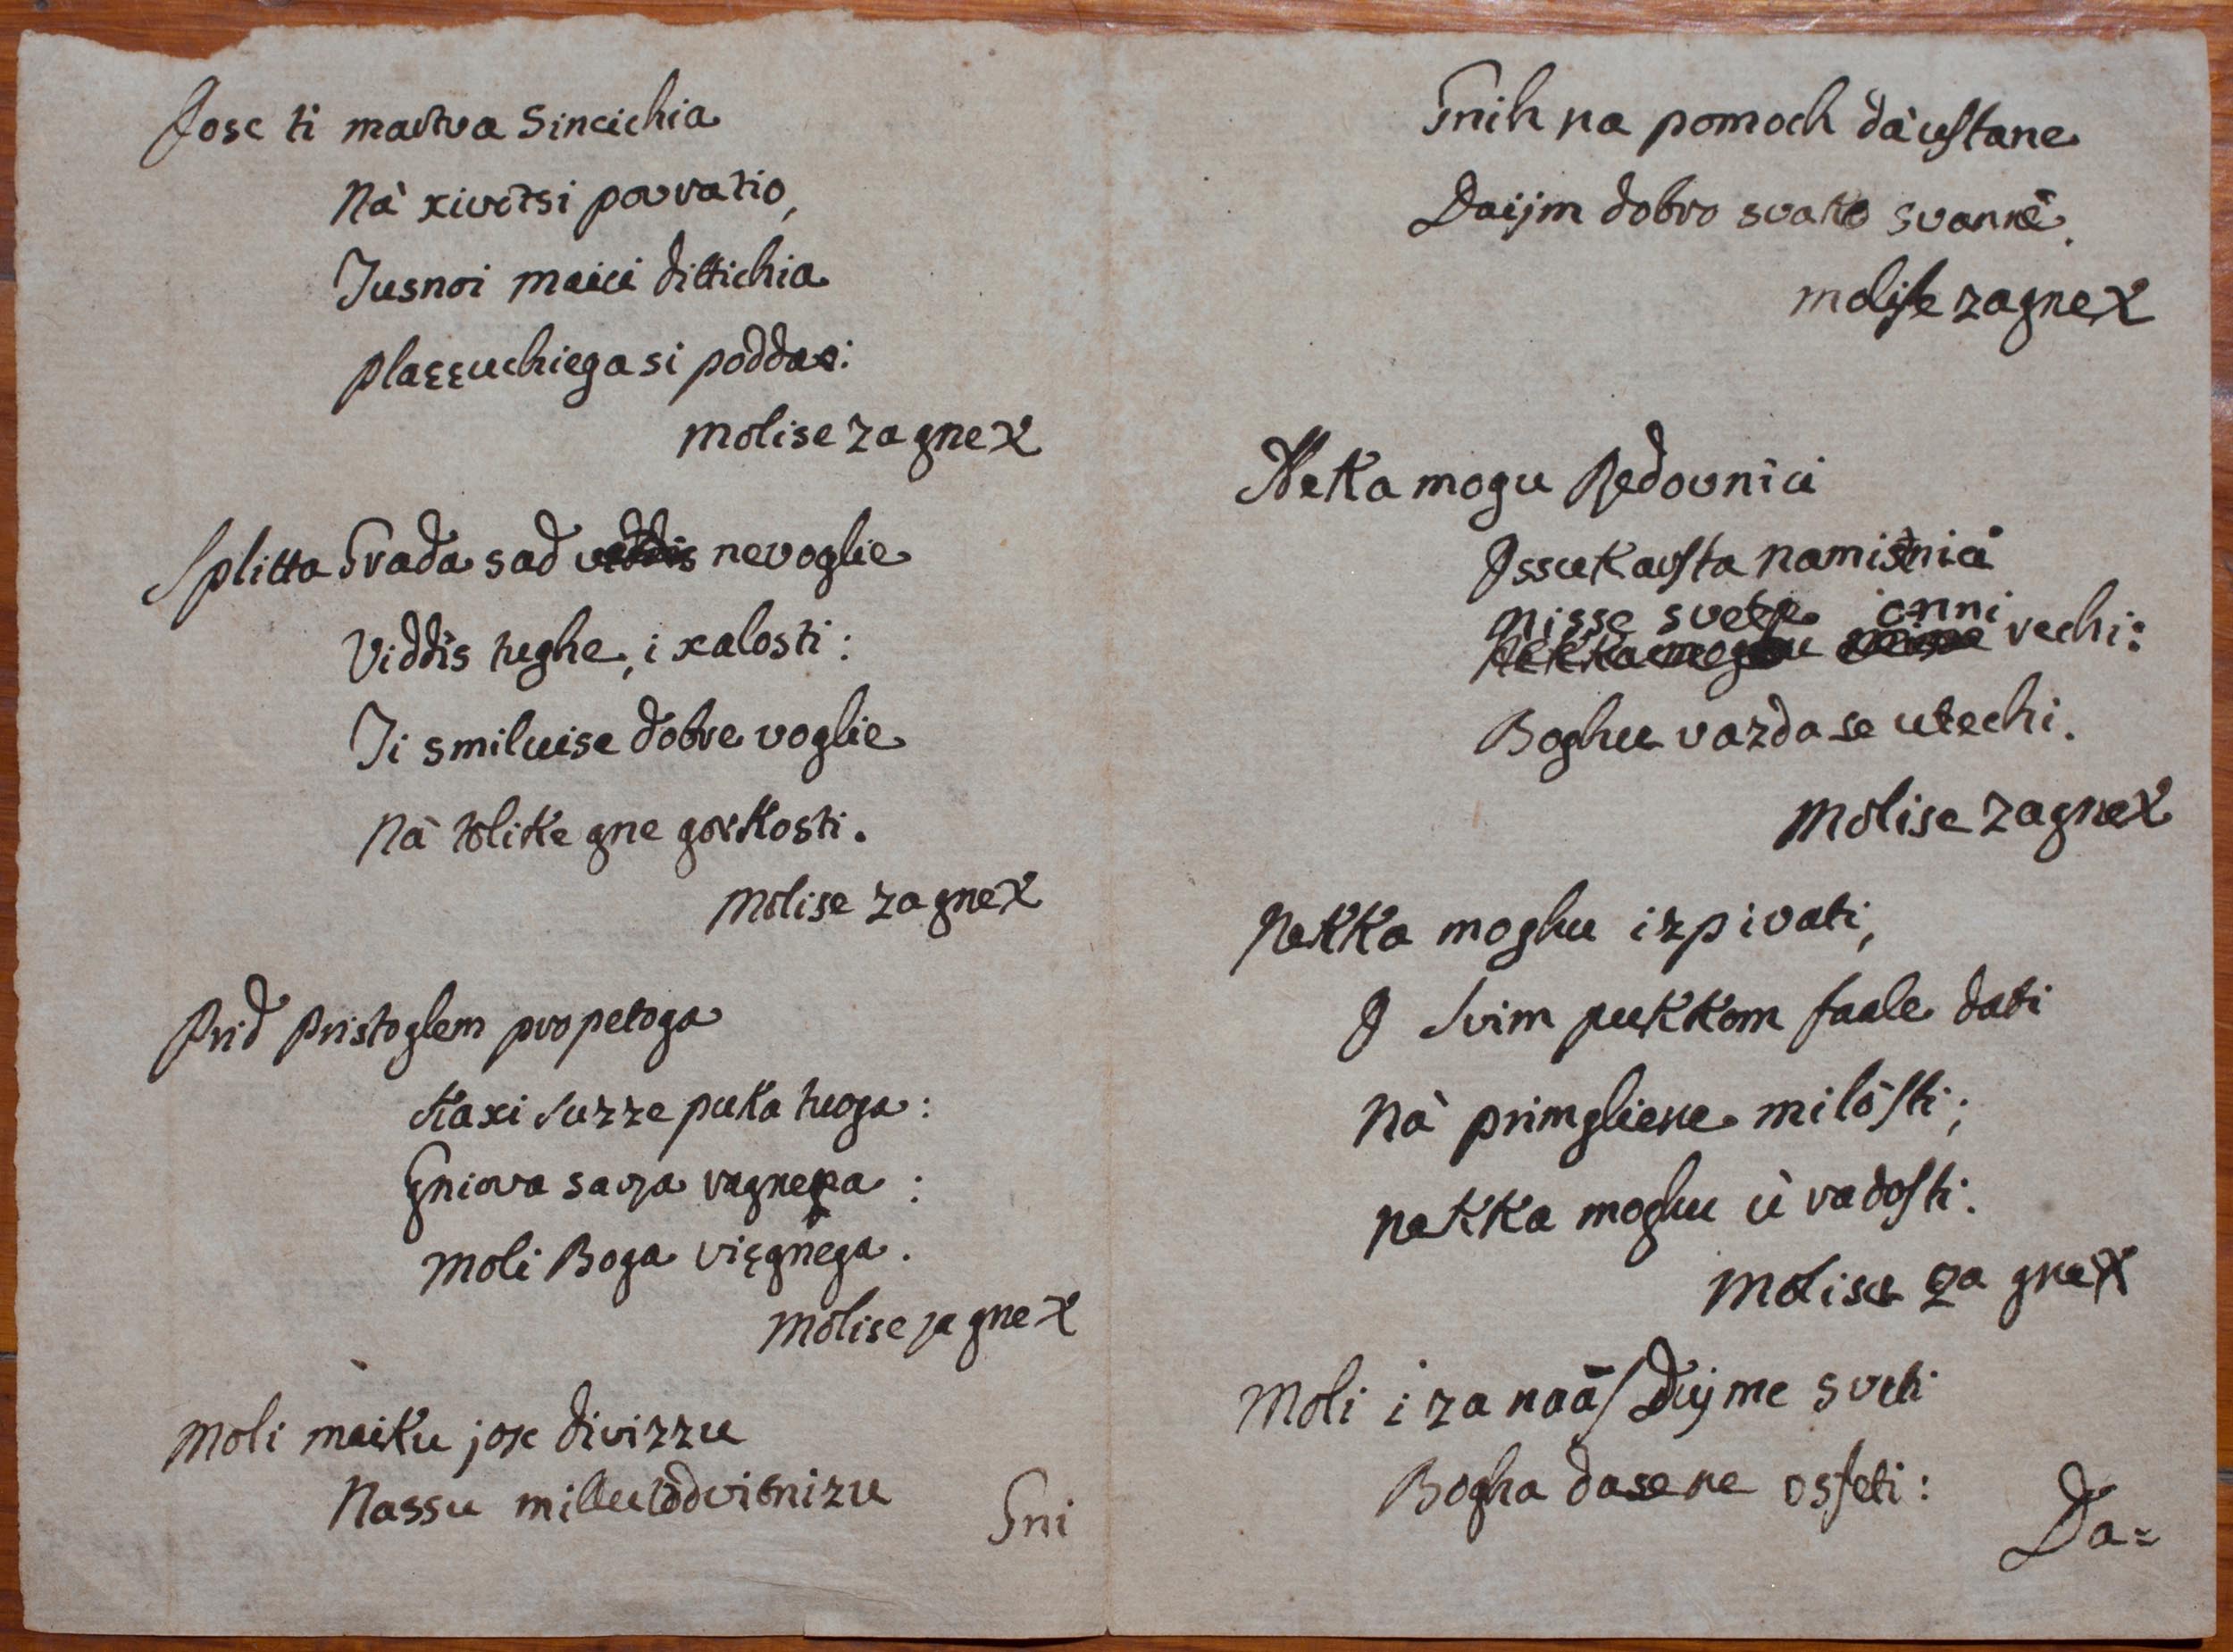 Josc ti martva Sincichia
Nà xivotsi povratio,
Jusnoi maici dittichia
plaççuchiega si poddao:
molise za gnex
Splitta Grada sad viddis nevoglie
Viddis tughe, i xalosti:
Ji smiluise dobre voglie
Nà tolike gne gorkosti.
molise za gnex
Prid pristoglem propetoga
Kaxi suzze puka tuoga:
Gniova sarza ragnena:
Moli Boga viçgnega.
Molise za gnex
Moli maiku jose divizzu
Nassu millu odvitnizu
Gni
Gnih na pomoch dà ustane
Daijm dobro svako svannè.
molise zagnex
Neka mogu Redovnici
Issukarsta namisnici
nisse svete i onni
vechi:
Boghu vazda se utechi.
Molise zagnex
Nekka moghu izpivati,
I Svim pukkom faale dati
Nà primgliene milòsti;
nekka moghu ù radosti.
Molise za gnex
Moli i za naas Dujme sveti
Bogha dasene osfeti:
Da=